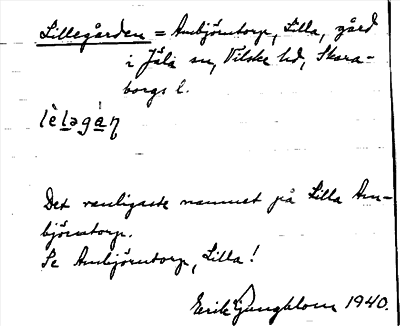 Lillegården = Ambjörntorp, Lilla, gård
i Jäla sn, Vilske hd, Skara-
borgs l.
lèlagán
Det vanligaste namnet på Lilla Am-
björntorp.
Se Ambjörntorp, Lilla!
Erik Ljungblom 1940.